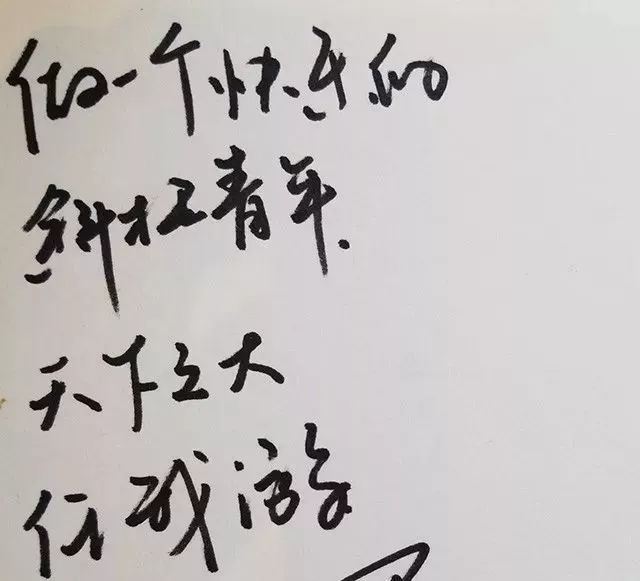 做一个快乐的
斜杠青年.
天下之大
任我游